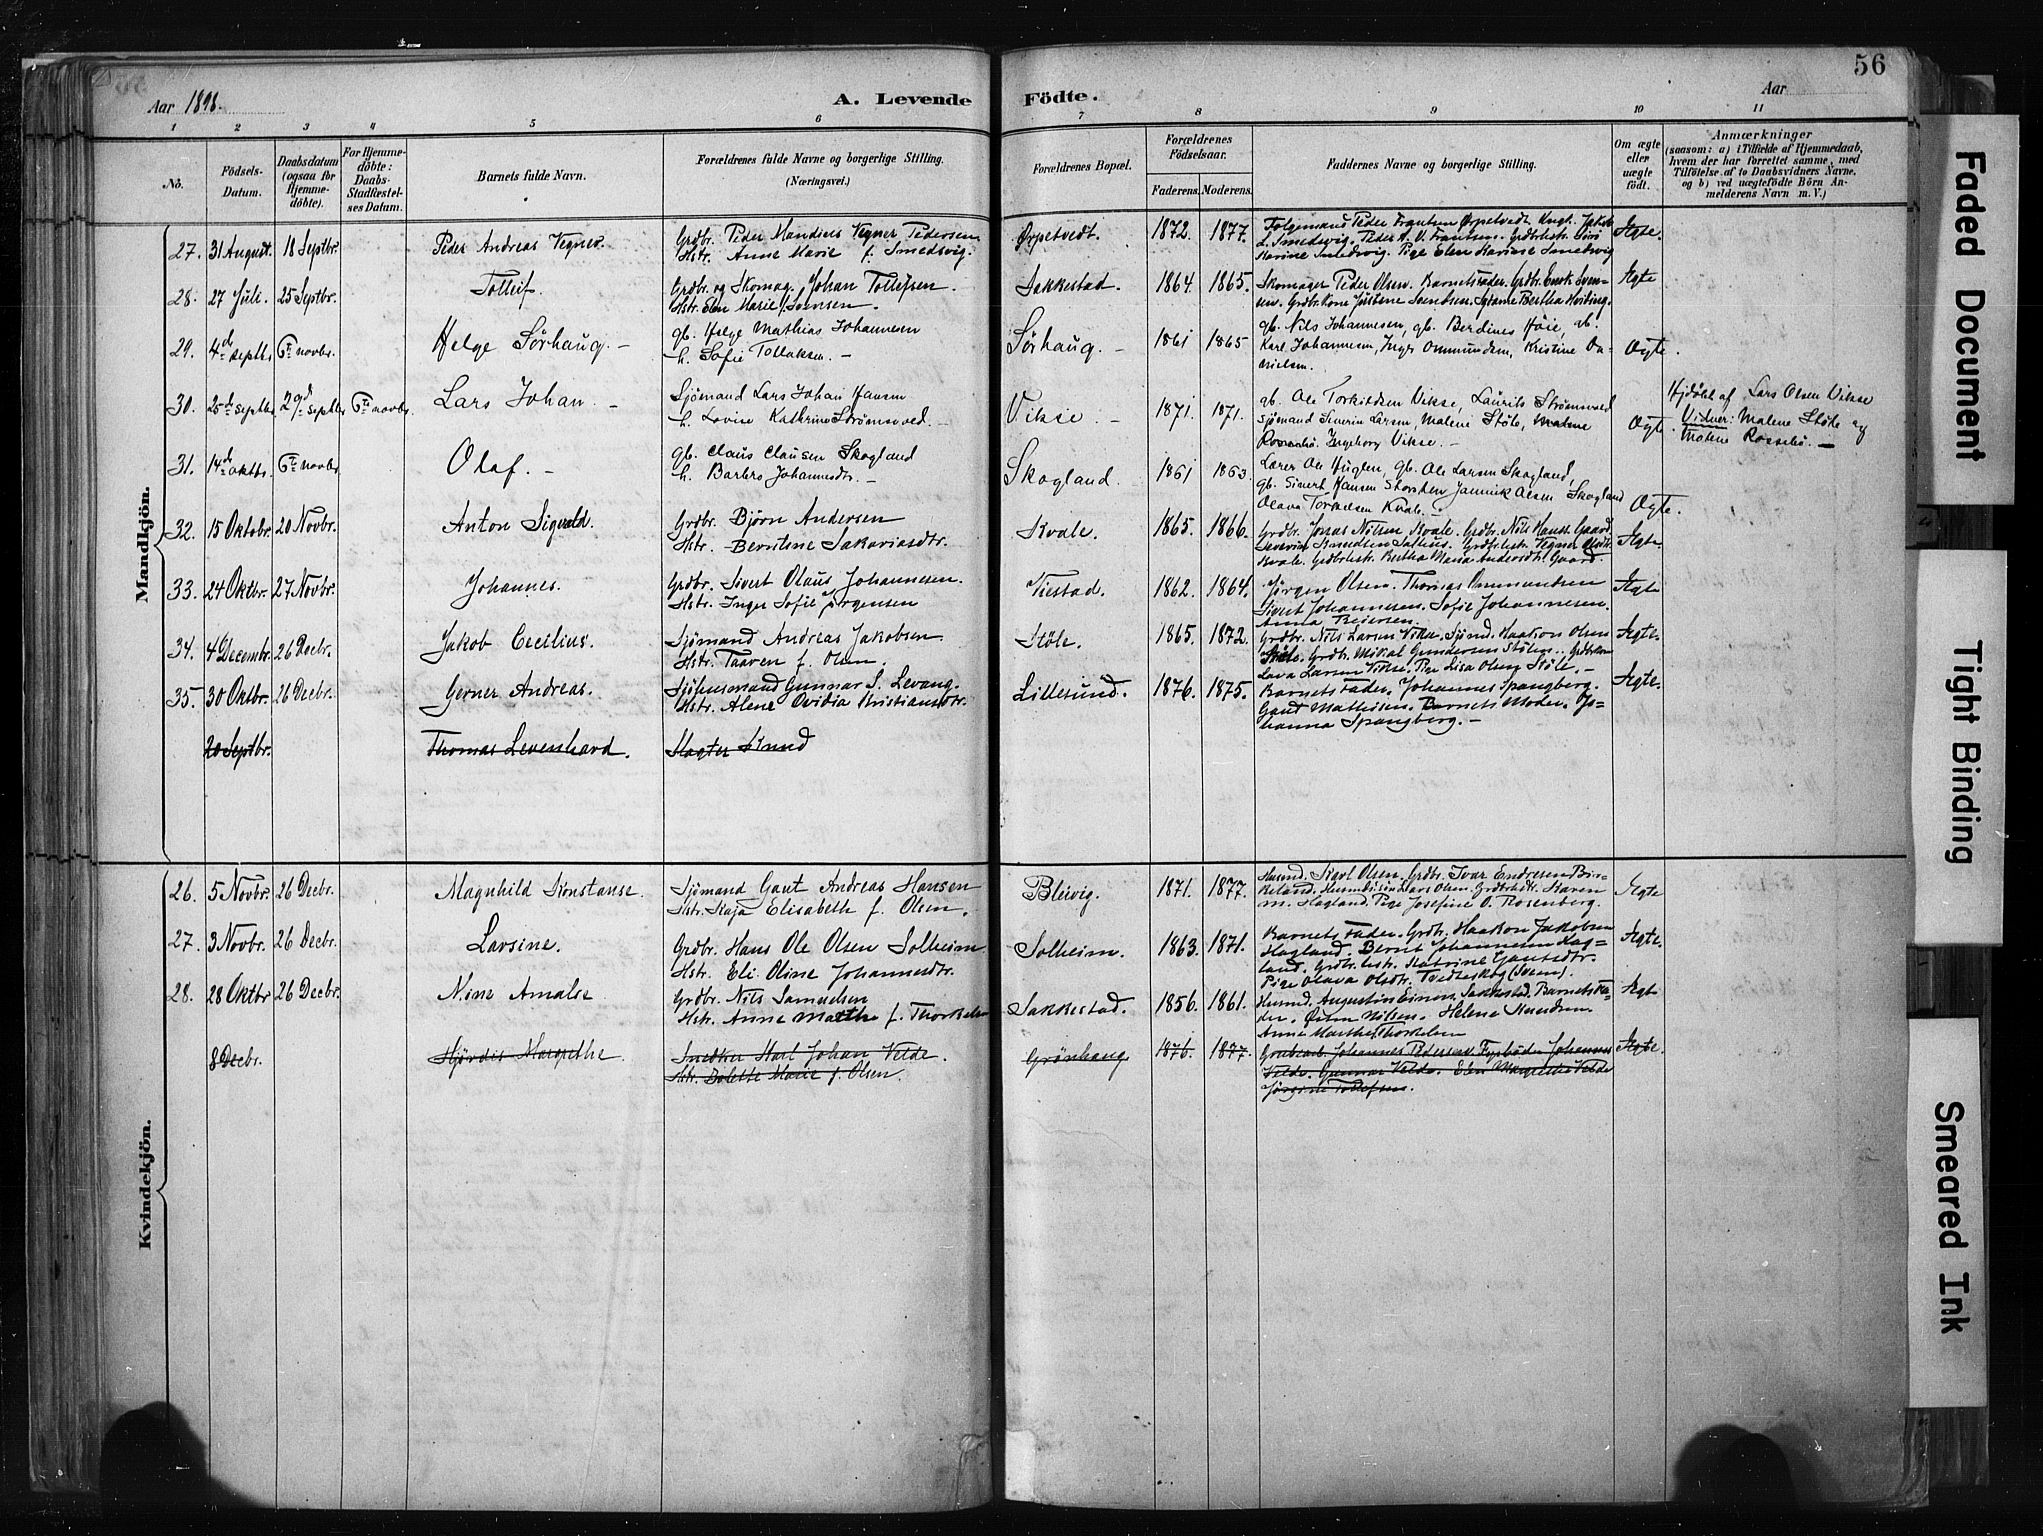 56
Aar 1898.
A. Levende Födte.
Aar
1 2 3 4 5 6 7 8 9 10 11
No.
Födsels-Datum.
Daabsdatum (ogsaa for Hjemme-döbte).
For Hjemme-döbte: Daabs-Stadfæstel-ses Datum.
Barnets fulde Navn.
Forældrenes fulde Navne og borgerlige Stilling. (Næringsvei.)
Forældrenes Bopæl.
Forældrenes Födselsaar.
Faderens. Moderens.
Faddernes Navne og borgerlige Stilling.
Om ægte eller uægte födt.
Anmærkninger
(saasom: a) i Tilfælde af Hjemmedaab,
hvem der har forrettet samme, med
Tilföielse af to Daabsvidners Navne,
og b) ved uægtefödte Börn An-
melderens Navn m. V.)
Mandkjön.
27. 31 August. 18 Septbr. Peder Andreas Vegner.
Grdbr. Peder Mandius Vegner Pedersen
Hstr. Anne Marie f. Smedsvig.
Ørpetvedt. 1872. 1877.
Ægte.
28. 27 Juli. 25 Septbr. Tolleif.
Grdbr. og Skomag. Johan Tollefsen.
Hstr. Elen Marie f. Svensen.
Sakkestad. 1864. 1865.
Skomager Peder Olsen. Barnets Fader. Grdbr. Enok Sven-
sen. Grdbr. Kone Justine Svendsen.
Ægte
29. 4de septb. 6te novbr. Helge Sørhaug. —
gb. Helge Mathias Johannesen
h. Sofie Tollaksen. —
Sørhaug. — 1861 1865
gb. Nils Johannesen, gb. Berdines Høie, gb.
Karl Johannesen, Inger Ommundsen, Kristine Da-
nielsen.
Ægte.
30. 25de septbr. 29de septbr. 6te novbr. Lars Johan. —
Sjömand Lars Johan Hansen
h. Lovise Kathrine Strømsvold. —
Vikse. — 1871. 1871.
gb. Ole Torkildsen Vikse, Laurits Strømsvold
sjömand Severin Larsen, Malene Støle, Malene
Rossebø. Ingeborg Vikse. —
Ægte.
Hjdöbt af Lars Olsen Vikse
Vidner: Malene Støle og
Malene Rossebø. —
31. 14de oktbr. 6te novbr. Olaf. —
gb. Claus Clausen Skogland
h. Barbro Johannesdtr. —
Skogland. 1861 1863.
Lærer Ole Huglen, gb. Ole Larsen Skogland,
gb. Sivert Hansen Jannik Olsen Skogland
Olava Torkelsen Kvale. —
Ægte.
32. 15 Oktobr. 20 Novbr. Anton Sigvald.
Grdbr. Bjørn Andersen
Hstr. Berntine Sakariasdtr.
Kvale. 1865. 1866.
Grdbr. Jonas Nilsen Kvale. Grdbr. Nils Hansen Gaard
Ægte.
33. 24 Oktbr. 27 Novbr. Johannes.
Grdbr. Sivert Olaus Johannesen.
Hstr. Inger Sofie Jørgensen
Viestad. 1862. 1864.
Jørgen Olsen. Thomas Ommundsen
Sivert Johannesen. Sofie Johannesen.
Anna Reiersen.
Ægte
34. 4 Decembr. 26 Decbr. Jakob Cecilius.
Sjömand Andreas Jakobsen
Hstr. Taaren f. Olsen.
Støle. 1865. 1872.
Grdbr. Nils Larsen Vikse. Sjömd. Haakon Olsen
Støle. Grdbr. Mikal Gundersen Stølen. Grdbrkone
Lava Larsen Vikse. Pige Lisa Olsen Støle. —
Ægte.
35. 30 Oktbr. 26 Decbr. Gerner Andreas.
Sjöhusmand Gunnar S. Levang.
Hstr. Alene Ovidia Kristiansdtr.
Lillesund. 1876. 1875.
Barnets Fader. Johannes Spangberg.
Gaut Mathisen. Barnets Moder. Jo-
hanna Spangberg. —
Ægte.
20 Septbr. Thomas Levenhard. Slagter Knud
Kvindekjön.
26. 5 Novbr. 26 Decbr. Magnhild Konstanse
Sjömand Gaut Andreas Hansen
Hstr. Kaja Elisabeth f. Olsen.
Bleivig. 1871. 1877.
Husmd. Karl Olsen. Grdbr. Ivar Endresen Brin-
keland. Lars Olsen. Karen
M. Hagland. Pige Josefine O. Rosenberg.
Ægte
27. 3 Novbr. 26 Decbr. Larsine.
Grdbr. Hans Ole Olsen Solheim
Hstr. Eli Oline Johannesdtr.
Solheim. 1863. 1871.
Barnets Fader. Grdbr. Haakon Jakobsen
Hagland. Bernt Johannesen Hag-
land. Katrine Gautsdtr.
Pige Olava Olsdtr. Tvedteskog (Sveen).
Ægte.
28. 28 Oktbr 26 Decbr. Nine Amalie
Grdbr. Nils Samuelsen
Hstr. Anne Marthe f. Thorkelsen
Sakkestad. 1856. 1861.
Husmd. Augustin Einersen. Sakkestad. Barnets Fa-
der. Nilsen. Helene Knudsen.
Anne Marthe Thorkelsen
Ægte
8 Decbr. Hjørdis Margrethe.
Snedker Karl Johan Velde.
Hstr. Bolette Marie f. Olsen.
Grönhaug 1876. 1877.
Johannes Pedersen. Fyrbøder Johannes
Velde. Gunnar Velde. Elen Margrethe Velde
Jørgine Tollefsen.
Ægte.
Faded Document
Tight Binding
Smeared Ink